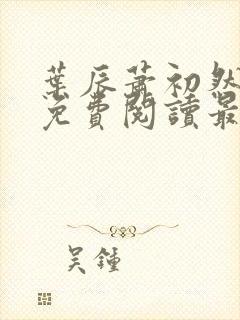 葉辰蕭初然
免費閱讀最
吴鍾